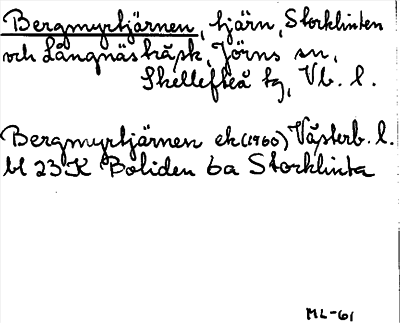 Bergmyrtjärnen, tjärn, Storklinten
och Långnästräsk, Jörns sn,
Skellefteå tg, Vb. l.
Bergmyrtjärnen ek (1960) Västerb. l.
bl 23K Boliden 6a Storklinta
ML-61